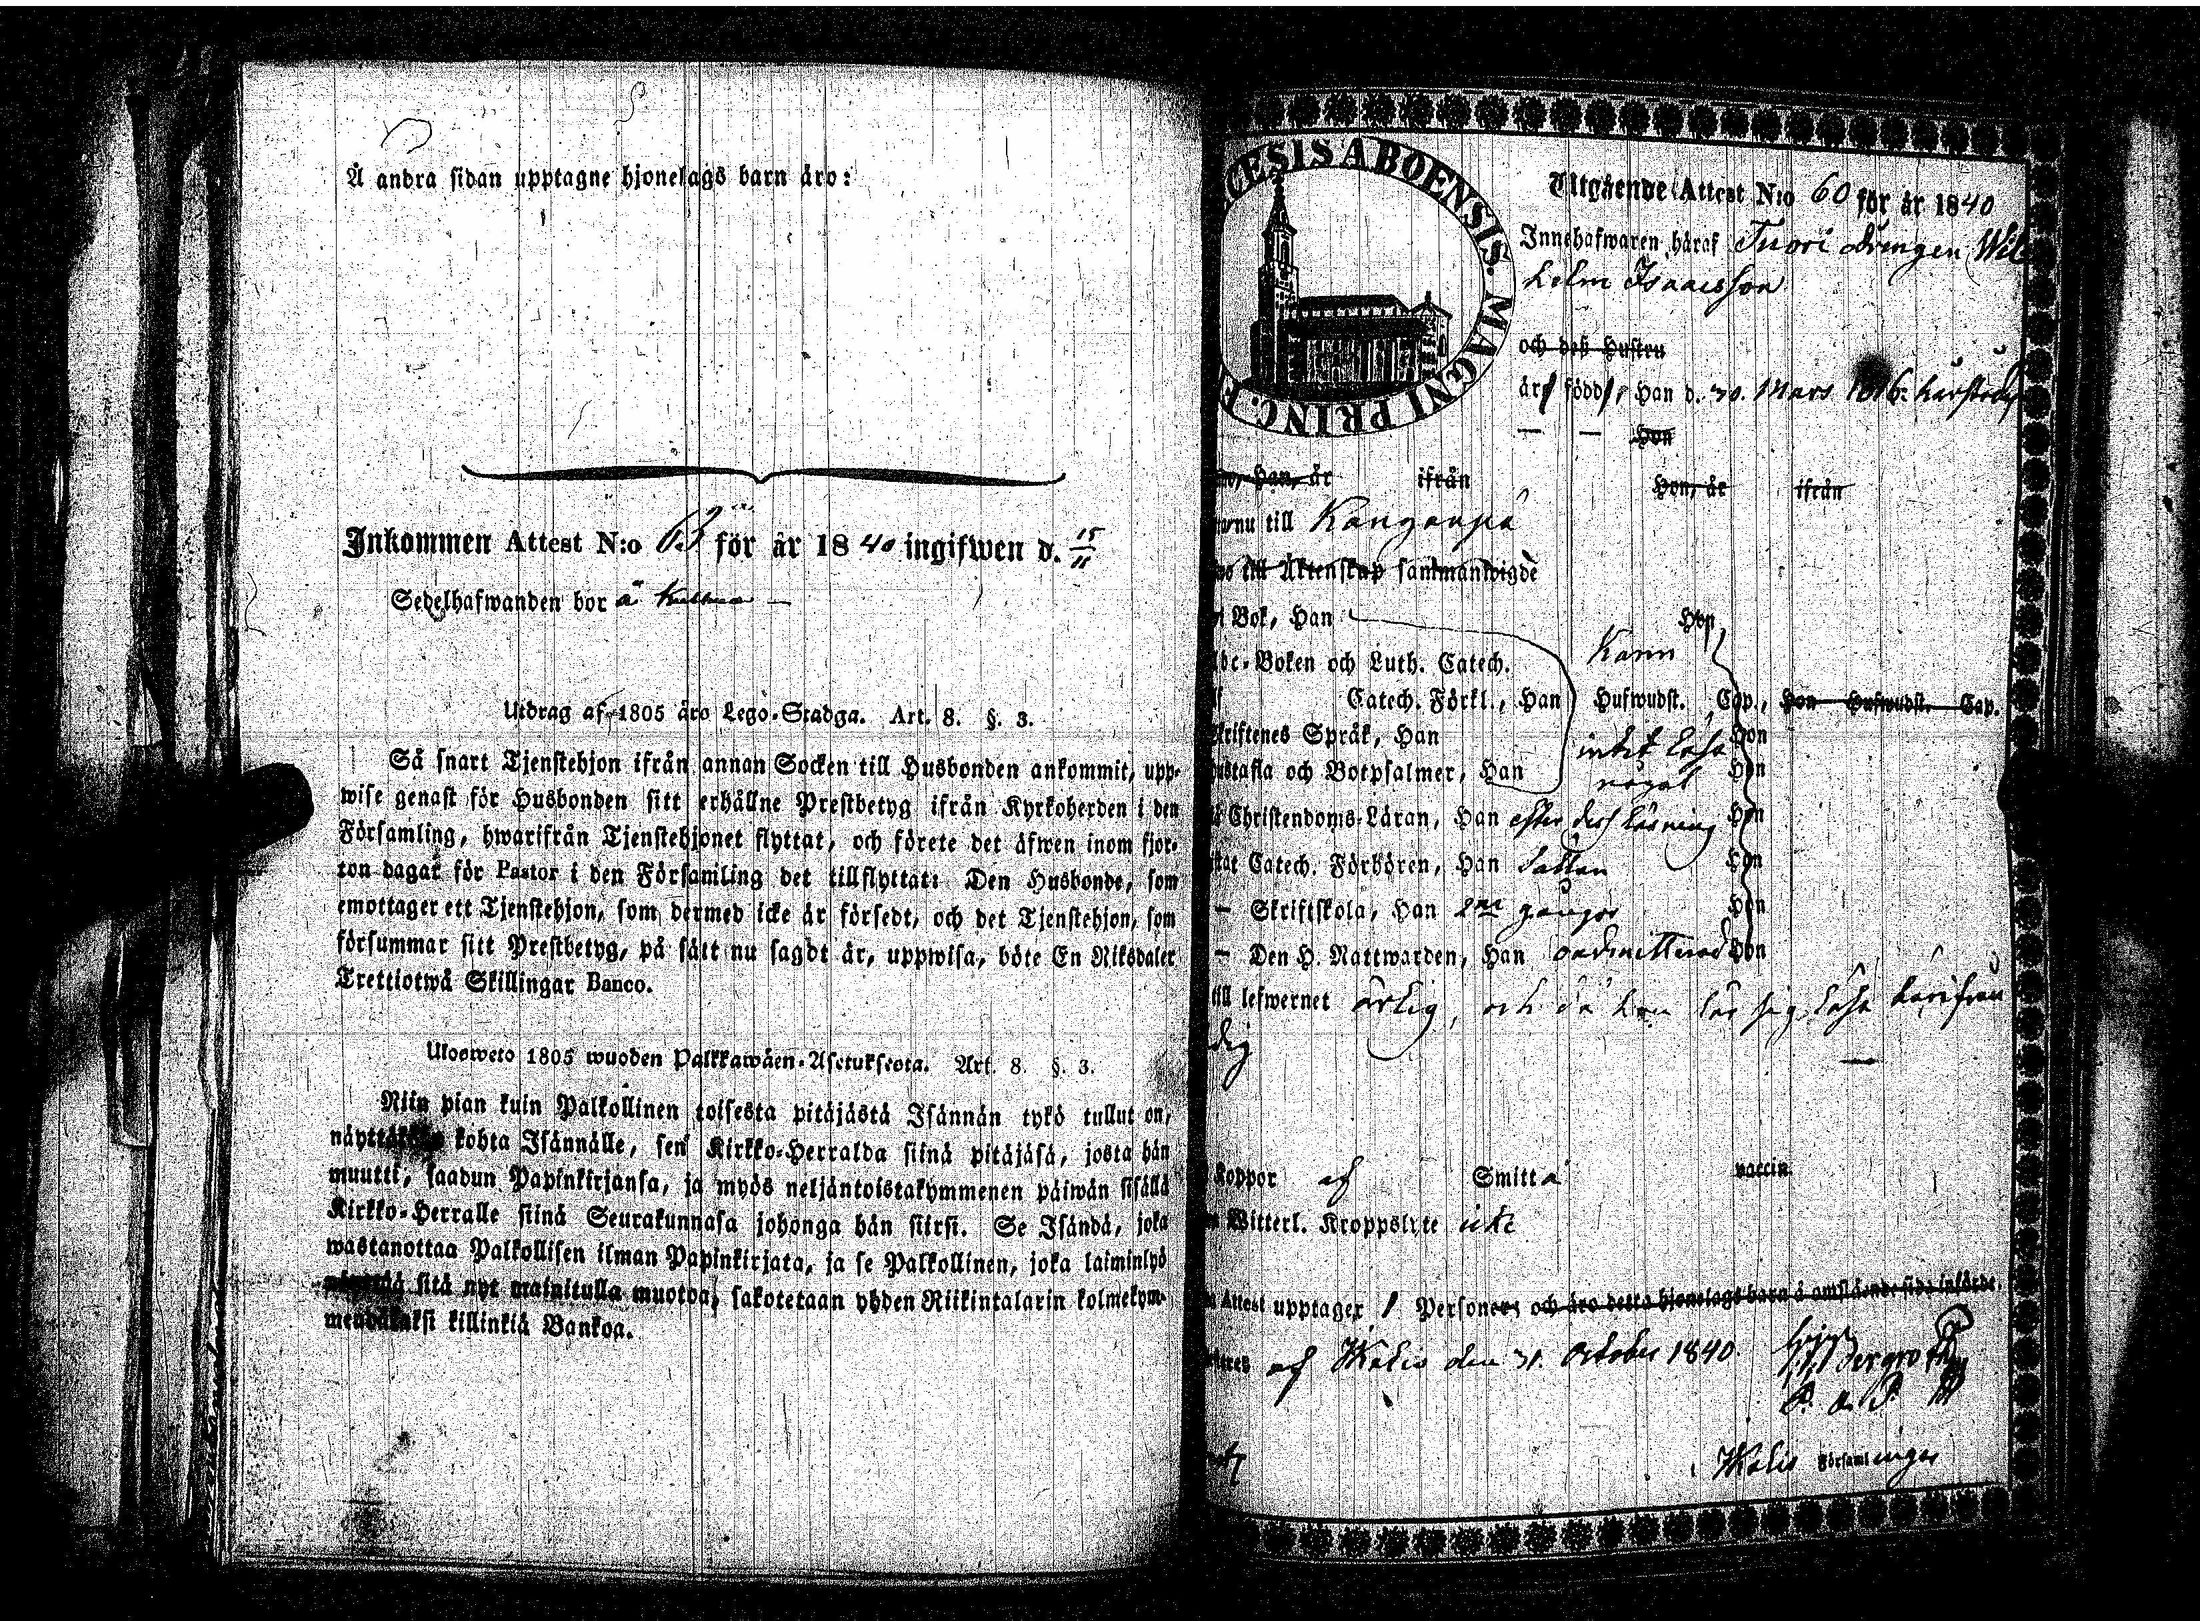 Å andra sidan upptagne hjonelags barn äro:
Inkommen Attest N:o 63 för år 1840 ingifwen d. 15/11
Sedelhafwanden bor å
Utdrag af 1805 års Lego-Stadga. Art. 8. §. 3.
Så snart Tjenstehjon ifrån annan Socken till Husbonden ankommit, upp-
wise genast för Husbonden sitt erhållne Prestbetyg ifrån Kyrkoherden i den
Församling, hwarifrån Tjenstehjonet flyttat, och förete det äfwen inom fjor-
ton dagar för Pastor i den Församling det tillflyttat: Den Husbonde, som
emottager ett Tjenstehjon, som dermed icke är försedt, och det Tjenstehjon, som
försummar sitt Prestbetyg, på sätt nu sagdt är, uppwisa, böte En Riksdaler
Trettiotwå Skillingar Banco.
Ulosweto 1805 wuoden Palkkawäen-Asetuksesta. Art. 8. §. 3.
Niin pian kuin Palkollinen toisesta pitäjästä Isännän tykö tullut on,
kohta Isännälle, sen Kirkko-Herralda siinä pitäjäsä, josta hän
muutti, saadun Papinkirjansa, ja myös neljäntoistakymmenen päiwän sisällä
Kirkko-Herralle siinä Seurakunnasa johonga hän siirsi. Se Isändä, joka
wastanottaa Palkollisen ilman Papinkirjata, ja se Palkollinen, joka laiminlyö
sitä nyt mainitulla muotoa, sakotetaan yhden Riikintalarin kolmekym-
killinkiä Bankoa.
CESIS ABOENSIS. MAGNI PRINC. F
Utgående Attest N:o 60 för år 1840
Innehafwaren häraf Tuori Drengen Wil
helm Isaacsson
och deß Hustru
är född, Han d. 30. Mars 1816. härstädes
— — Hon
Han, är ifrån Hon, är ifrån
nu till Kanganpä
till Äktenskap sammanwigde
Bok, Han Hon
Boken och Luth. Catech. Kann
Catech. Förkl., Han Hufwudst. Cap., Hon Hufwudst. Cap.
Skriftenes Språk, Han intet läsa Hon
Hustafla och Botpsalmer, Han något Hon
Christendoms-Läran, Han efter dess läsning Hon
Catech. Förhören, Han sällan Hon
— Skriftskola, Han 2ne gånger Hon
— Den H. Nattwarden, Han oadmitterad Hon
till lefwernet ärlig, och då han lär sig läsa härifrån
dig
koppor af Smitta vaccin
Witterl. Kroppslyte icke
Attest upptager 1 Personer och äro detta hjonelags barn å omstående sida införde.
af Ikalis den 31. October 1840.
Bergroth
P. a. P.
Ikalis Församlinges